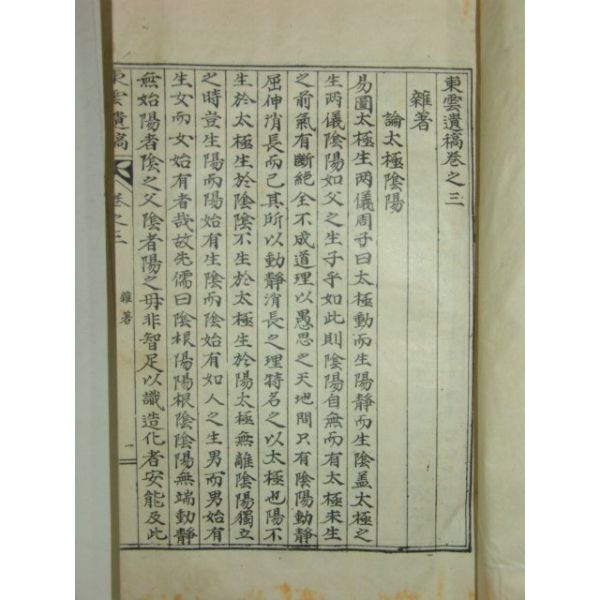 東雲遺稿卷之三
雜著
論太極陰陽
易圖太極生兩儀周子曰太極動而生陽靜而生陰盖太極之
生兩儀陰陽如父之生子乎如此則陰陽自無而有太極未生
之前氣有斷絕全不成道理以愚思之天地間只有陰陽動靜
屈伸消長而已其所以動靜消長之理特名之以太極也陽不
生於太極生於陰陰不生於太極生於陽太極無離陰陽獨立
之時豈生陽而陽始有生陰而陰始有如人之生男而男始有
生女而女始有者哉故先儒曰陰根陽陽根陰陰陽無端動靜
無始陽者陰之父陰者陽之母非智足以識造化者安能及此
東雲遺稿
卷之三
雜著
一